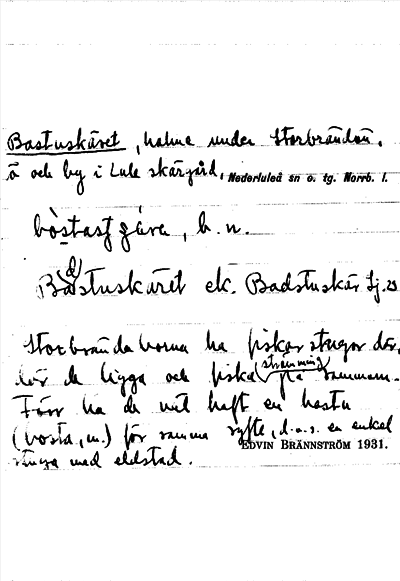 Bastuskäret, holme under Storbrändön,
ö och by i Lule skärgård, Nederluleå sn o. tg. Norrb. l.
b.n.
Ba(d)stuskäret ek. Badstuskär Sj. 23
Storbrändeborna ha fiskarstugor där,
där de ligga och fiska (strömming) på sommarn.
Förr ha de väl haft en bastu
(bosta, m.) för samma syfte, d.v.s. en enkel
stuga med eldstad.
EDVIN BRÄNNSTRÖM 1931.